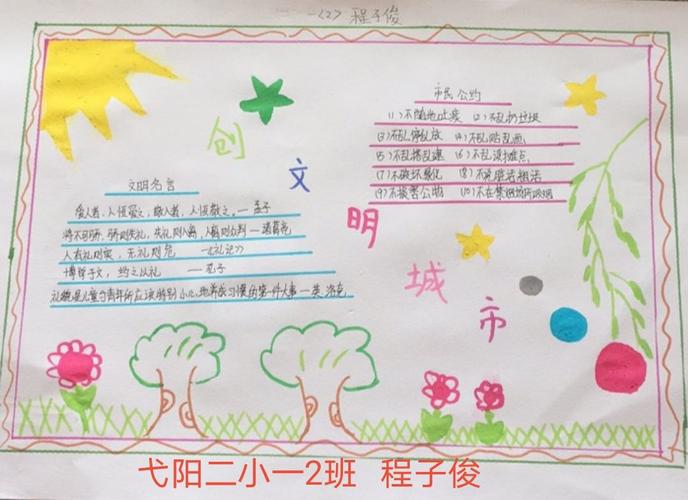 一(2) 程子俊
创文明城市
文明名言
爱人者，人恒爱之，敬人者，人恒敬之。—孟子
将不可骄，骄则失礼，失礼则人离，人离则众叛—诸葛亮
人有礼则安，无礼则危 —《礼记》
博学于文，约之以礼 —孔子
礼貌是儿童与青年所应该特别小心地养成习惯的第一件大事—英.洛克
市民公约
(1)不随地吐痰 (2)不乱扔垃圾
(3)不乱停乱放 (4)不乱贴乱画
(5)不乱搭乱建 (6)不乱设摊点
(7)不破坏绿化 (8)不说脏话粗话
(9)不损害公物 (10)不在禁烟场所吸烟
弋阳二小一2班 程子俊